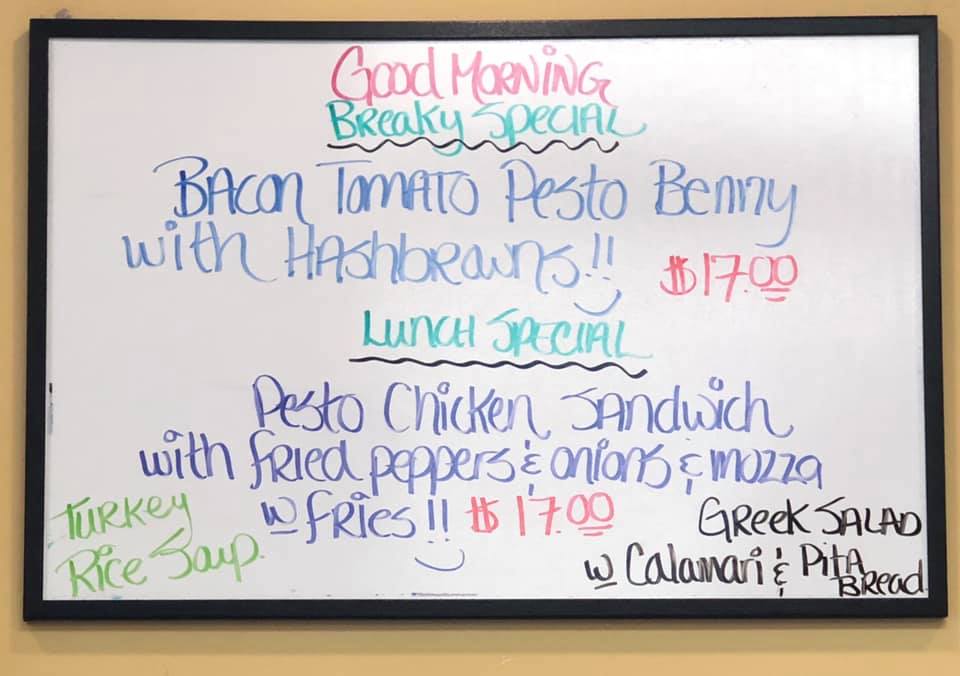 Good Morning
Breaky Special
Bacon Tomato Pesto Benny
with Hashbrowns!!
$17.00
Lunch Special
Pesto Chicken Sandwich
with fried peppers & onions & mozza
w fries!! $17.00
Turkey
Rice Soup.
Greek Salad
w Calamari & Pita
Bread